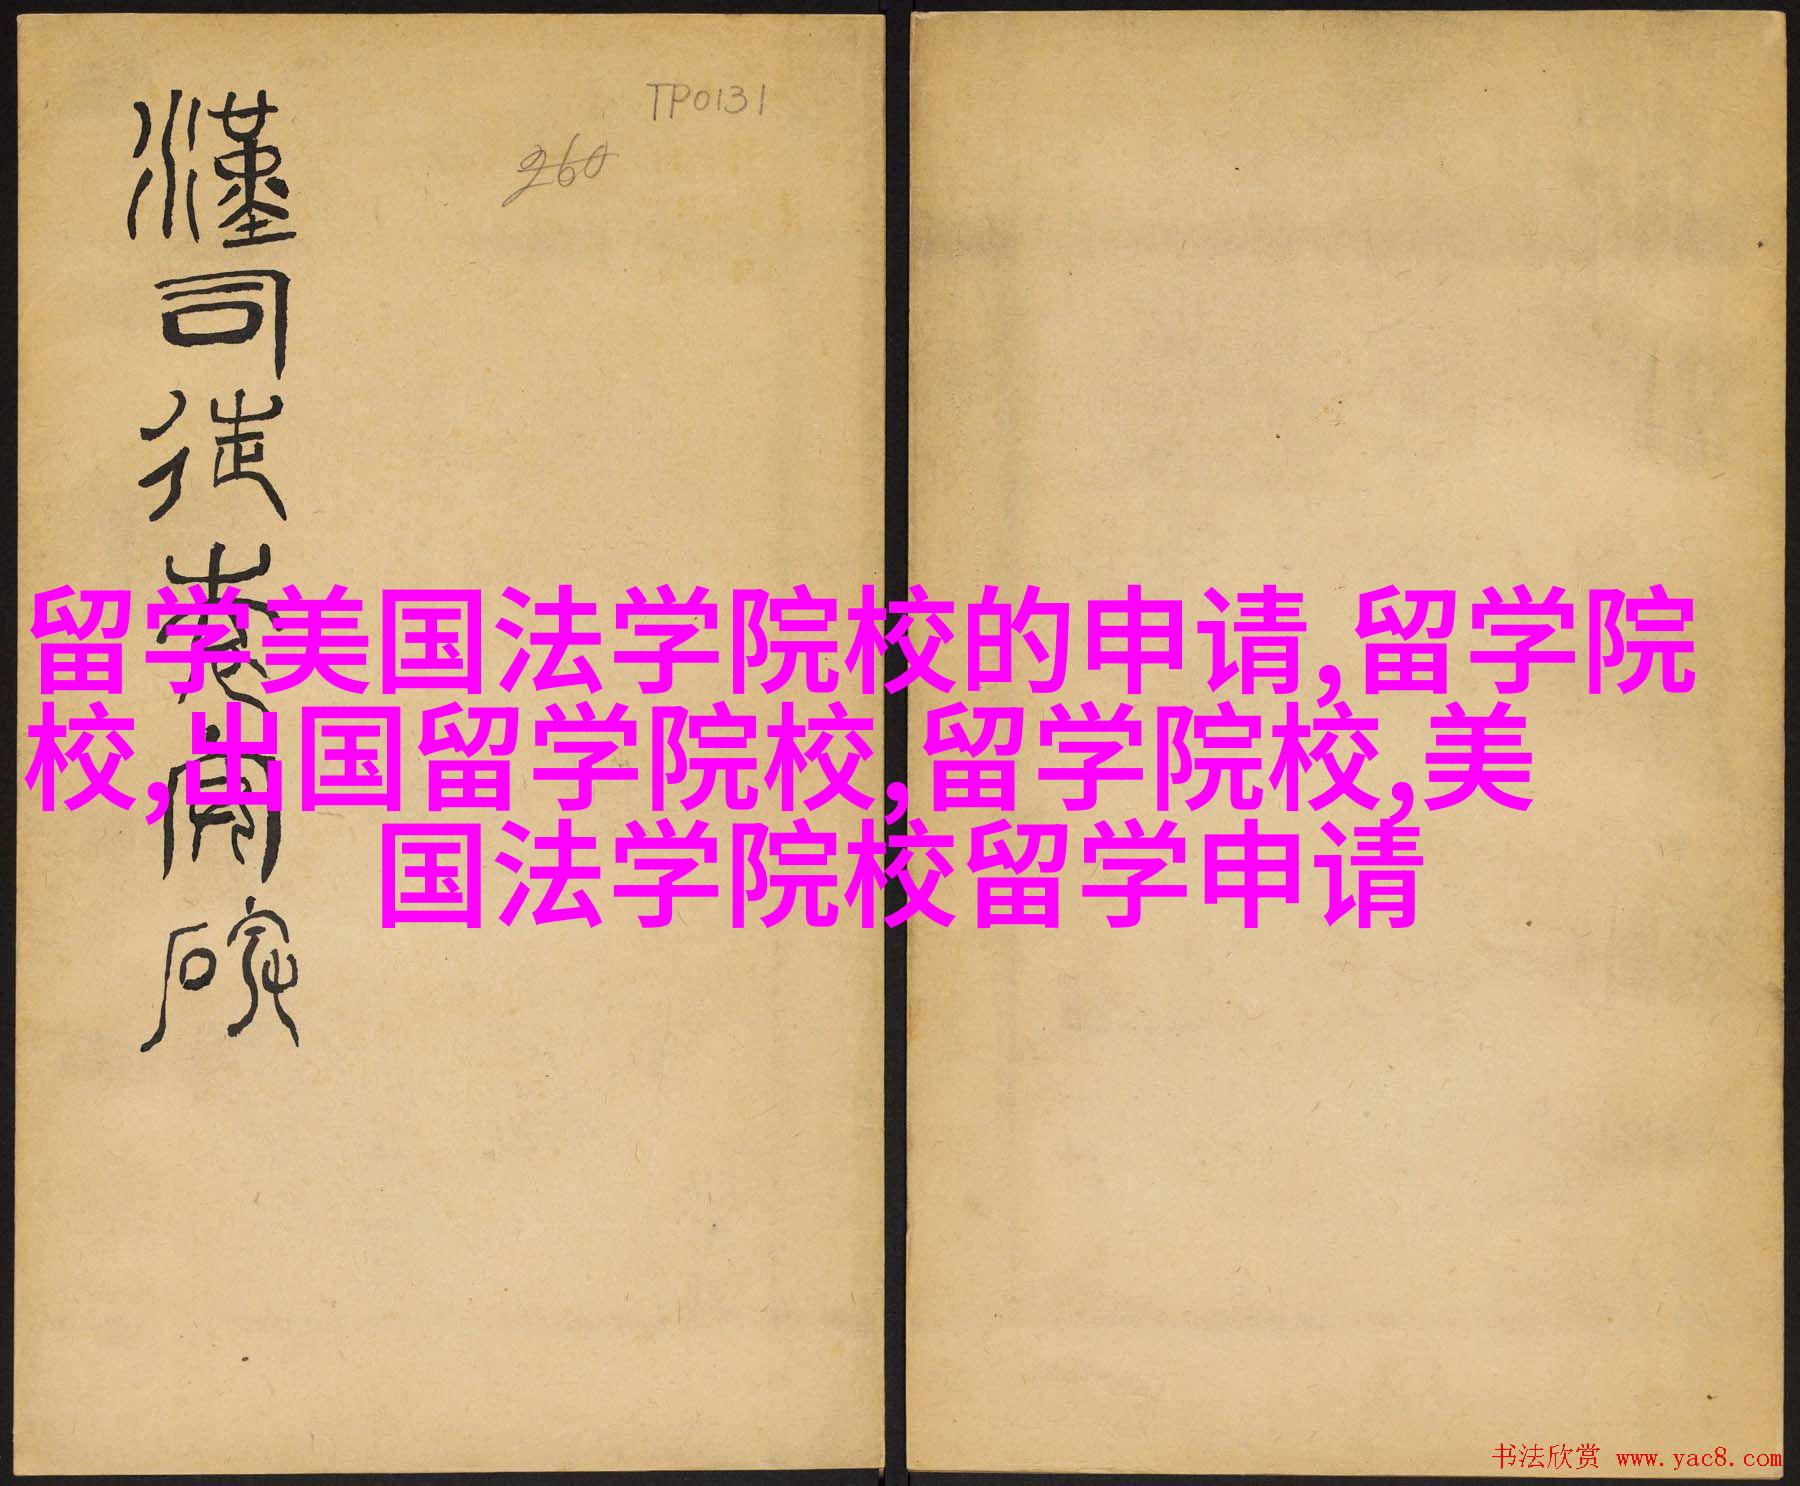 TP0131
260
漢司徒袁安碑
留学美国法学院校的申请,留学院
校,出国留学院校,留学院校,美
国法学院校留学申请
书法欣赏 www.yac8.com